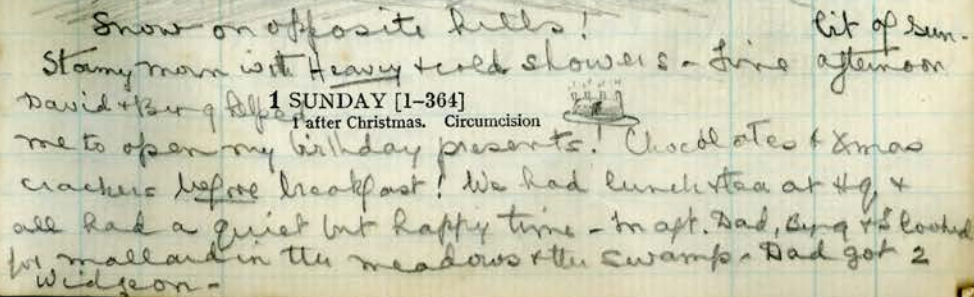 Snow on opposite hills! bit of sun.
Stormy morn with Heavy & cold showers - Fine afternoon
David & Byng helped
1 SUNDAY [1–364]
1 after Christmas. Circumcision
me to open my birthday presents! Chocolates & Xmas
crackers before breakfast! We had lunch & tea at Hq, &
all had a quiet but happy time - In aft. Dad, Byng & I looked
for mallard in the meadows & the swamp. Dad got 2
Widgeon -